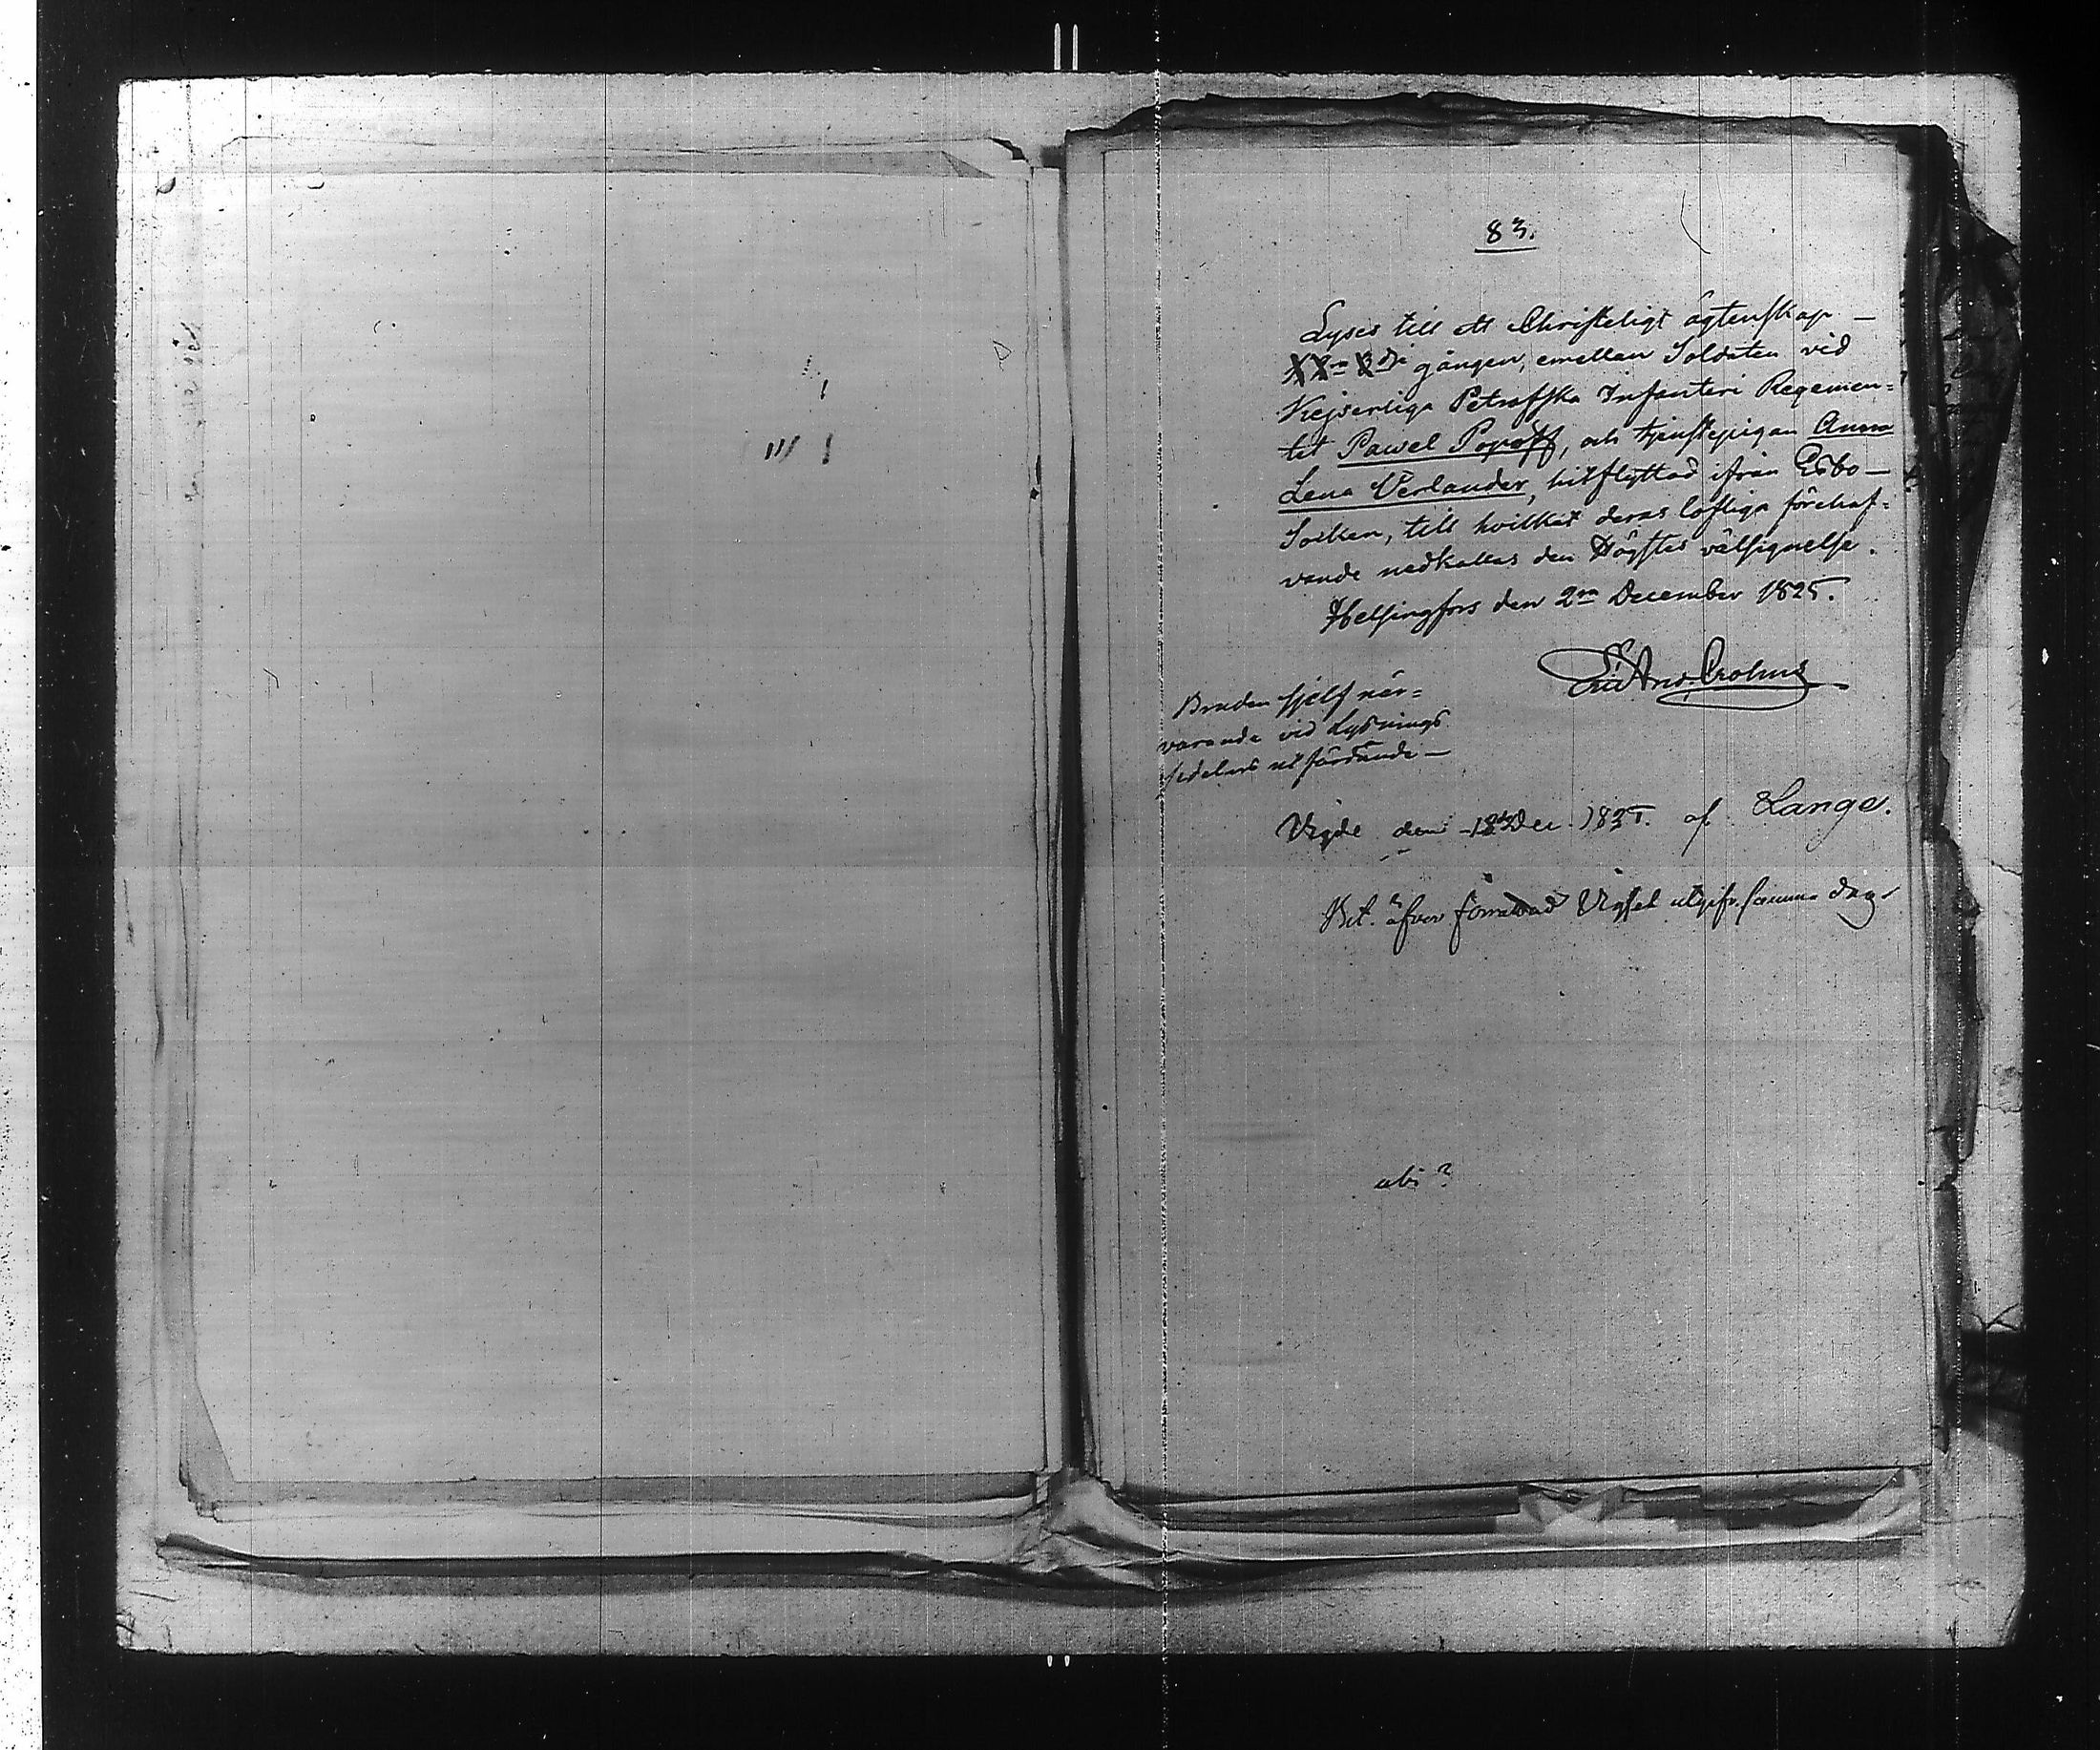 83.
Lyses till ett Christeligt ägtenskap —
gången, emellan Soldaten vid
Kejserliga Petrofska Infanteri Regemen=
tet Pawel Popoff, och tjenstepigan Anna
Lena Verlander, hitflyttad ifrån Esbo —
Socken, till hvilket deras lofliga förehaf=
vande nedkallas den Högstes välsignelse.
Helsingfors den 2ra December 1825.
Bruden sjelf när=
varande vid Lysnings
sedelns utfärdande —
Vigde den 18 Dec. 1825. af Lange.
Bet. öfver förrättad Vigsel utgifv. samma dag.
ubi?